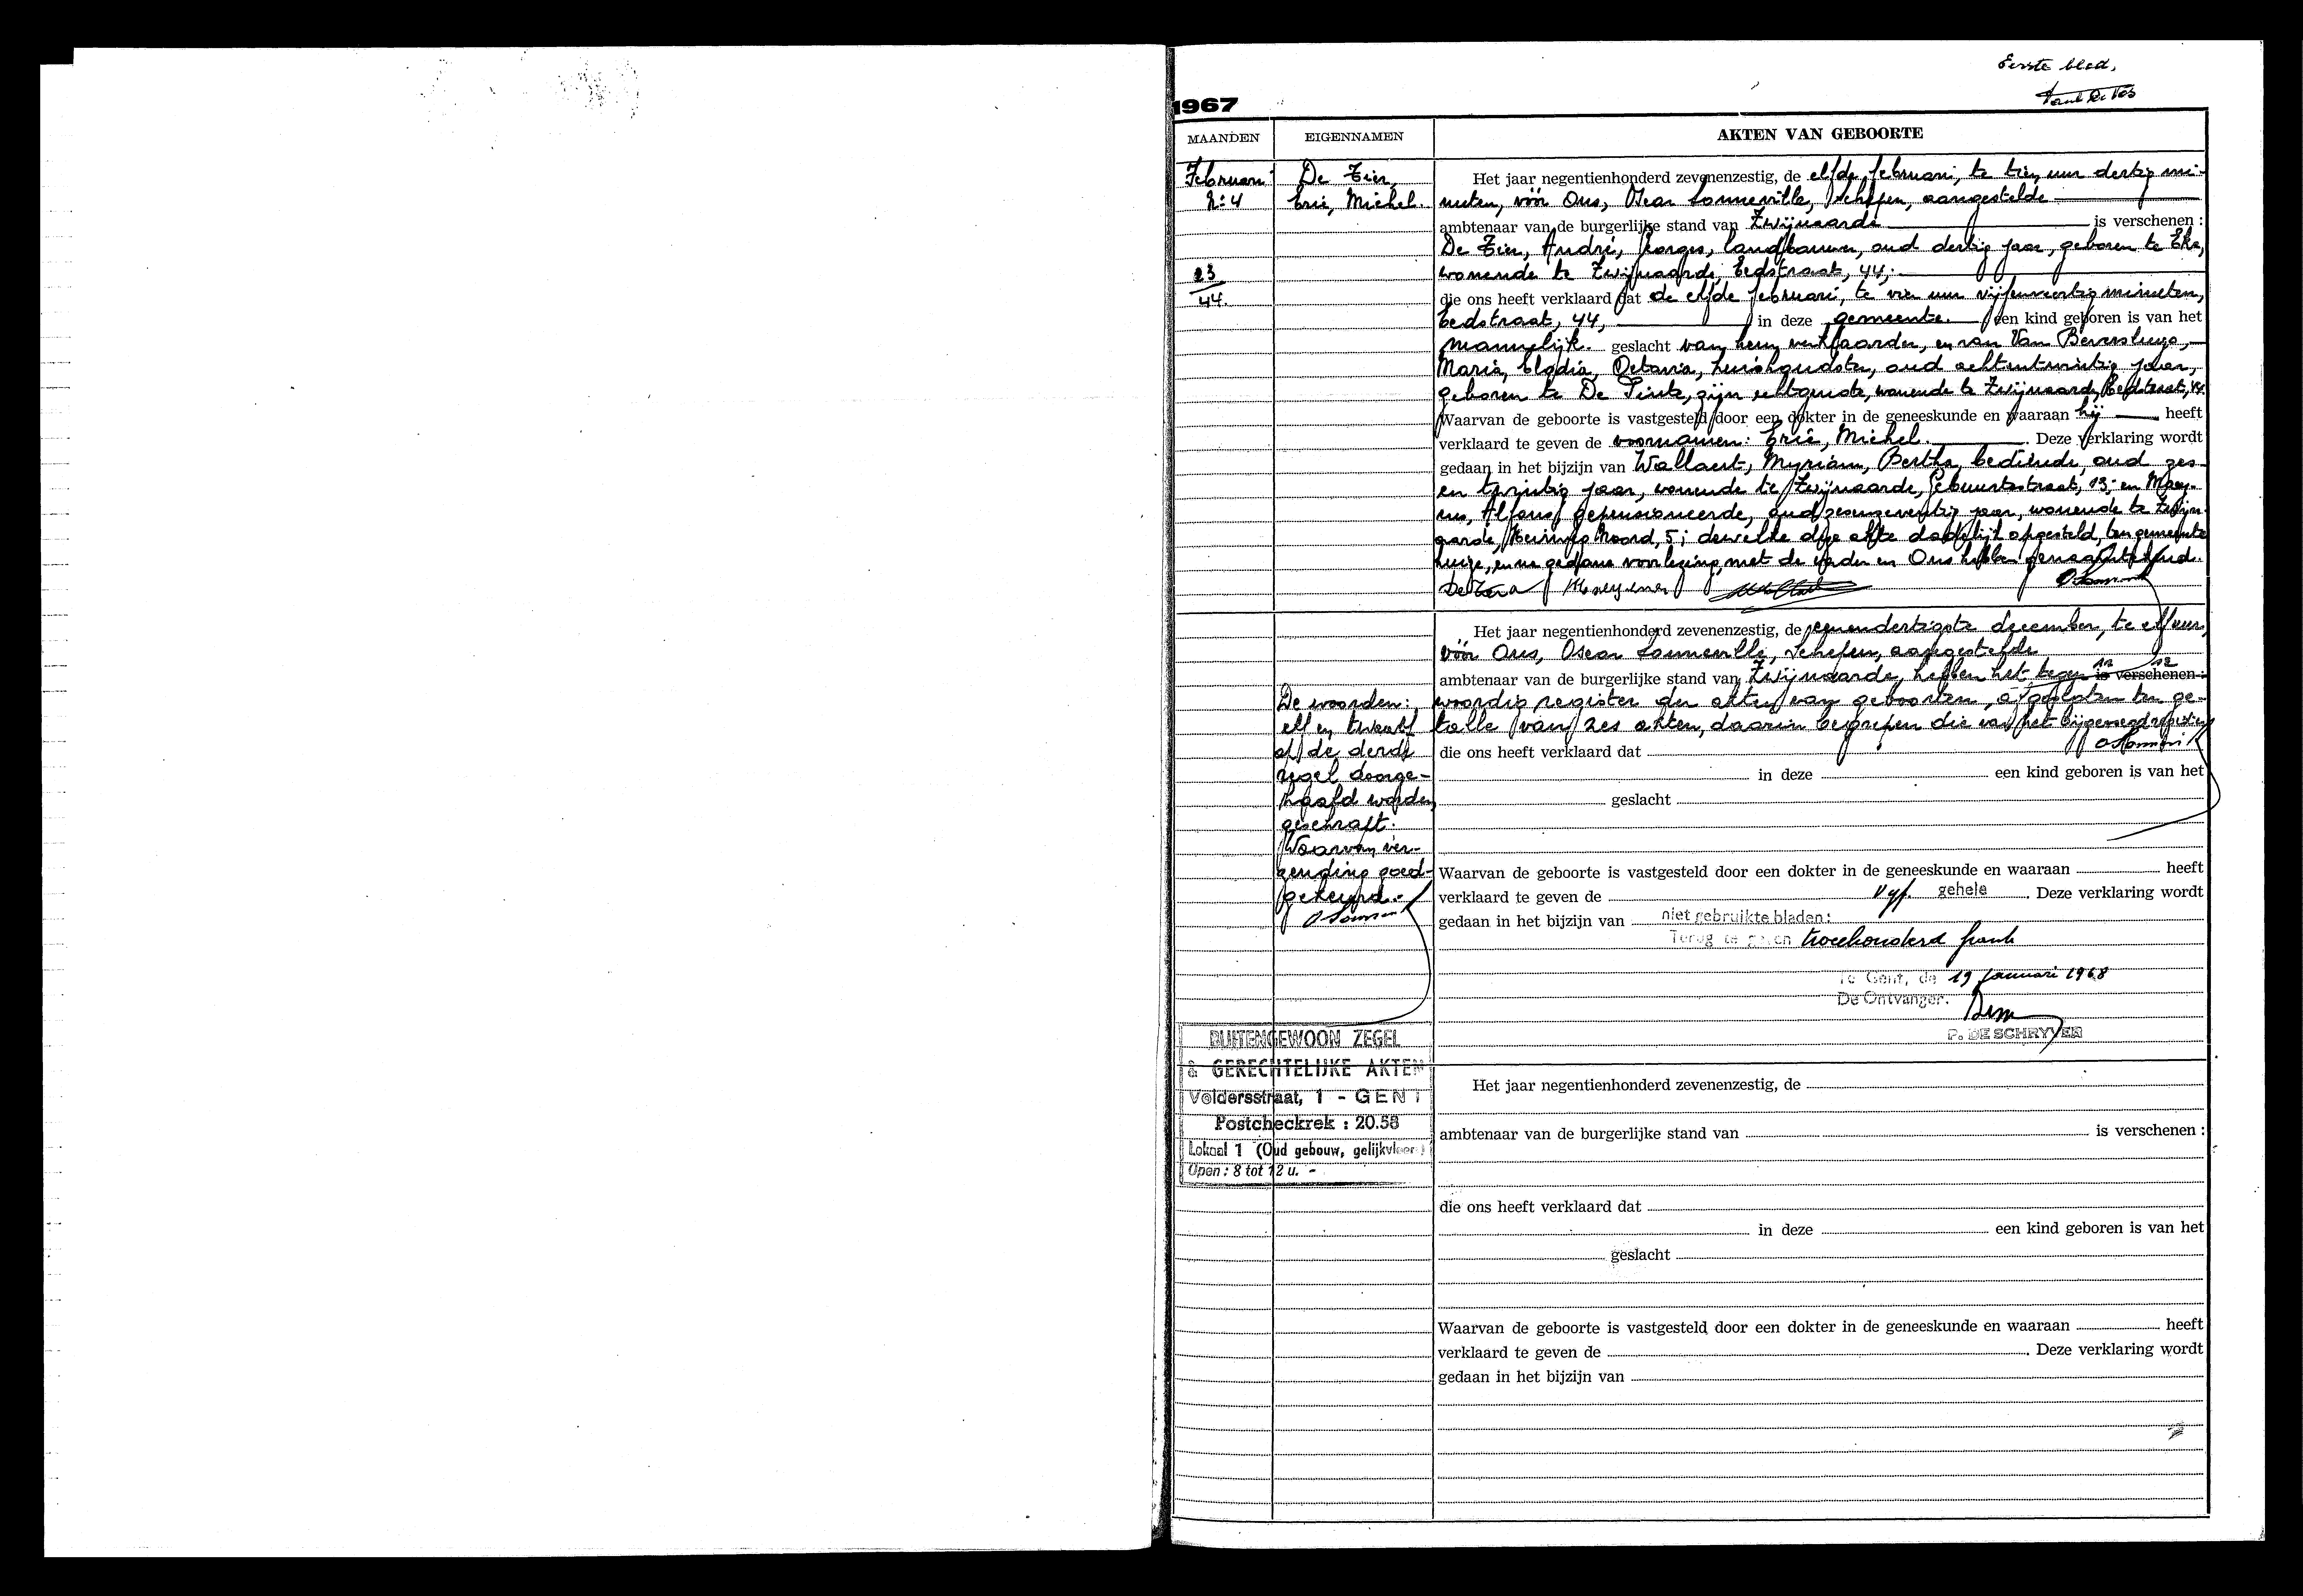 Eerste blad,
1967
MAANDEN EIGENNAMEN AKTEN VAN GEBOORTE
Februari De Tier,
N:4 Eric, Michel.
23
44.
Het jaar negentienhonderd zevenenzestig, de elfde februari, te tien uur dertig mi-
nuten, vóór Ons, Oscar Sonneville, Schepen, aangestelde
ambtenaar van de burgerlijke stand van Zwijnaarde is verschenen :
De Tier, André, Georges, landbouwer, oud dertig jaar, geboren te Eke,
wonende te Zwijnaarde, Eedstraat, 44;
die ons heeft verklaard dat de elfde februari, te vier uur vijfenveertig minuten,
Eedstraat, 44, in deze gemeente. een kind geboren is van het
mannelijk. geslacht van hem verklaarder, en van Van Beversluys,
Maria, Elodia, Octavia, huishoudster, oud achtentwintig jaar,
geboren te De Pinte, zijn echtgenote, wonende te Zwijnaarde, Eedstraat, 44.
Waarvan de geboorte is vastgesteld door een dokter in de geneeskunde en waaraan hij heeft
verklaard te geven de voornamen: Eric, Michel. . Deze verklaring wordt
gedaan in het bijzijn van Wallaert, Myriam, Bertha, bediende, oud zes-
en twintig jaar, wonende te Zwijnaarde, Gebuurtestraat, 13; en Maey-
ens, Alfons, gepensioneerde, oud jaar, wonende te Zwijn-
aarde, Noord, 5; dewelke deze akte dadelijk opgesteld, ten gemeente
huize, en na gedane voorlezing, met de vader en Ons hebben
De Tier A Maeyens
Het jaar negentienhonderd zevenenzestig, de eenendertigste december, te elf uur,
vóór Ons, Oscar Sonneville, Schepen, aangestelde
11 12
ambtenaar van de burgerlijke stand van Zwijnaarde, hebben het tegen is verschenen :
woordig register der akten van geboorten, afgesloten ten ge-
talle van zes akten, daarin begrepen die van het bijgevoegd register
De woorden:
elf en twaalf
op de derde
regel doorge-
haald worden
geschrapt.
Waarvan ver-
zending goed-
gekeurd.
die ons heeft verklaard dat
in deze een kind geboren is van het
geslacht
Waarvan de geboorte is vastgesteld door een dokter in de geneeskunde en waaraan heeft
verklaard te geven de vijf gehele . Deze verklaring wordt
gedaan in het bijzijn van niet gebruikte bladen:
Terug te geven tweehonderd frank
Te Gent, de 19 januari 1968
De Ontvanger.
P. DE SCHRYVER
BUITENGEWOON ZEGEL
& GERECHTELIJKE AKTEN
Voldersstraat, 1 - GENT
Postcheckrek : 20.58
Lokaal 1 (Oud gebouw, gelijkvloers)
Open : 8 tot 12 u. -
Het jaar negentienhonderd zevenenzestig, de
ambtenaar van de burgerlijke stand van is verschenen :
die ons heeft verklaard dat
in deze een kind geboren is van het
geslacht
Waarvan de geboorte is vastgesteld door een dokter in de geneeskunde en waaraan heeft
verklaard te geven de . Deze verklaring wordt
gedaan in het bijzijn van